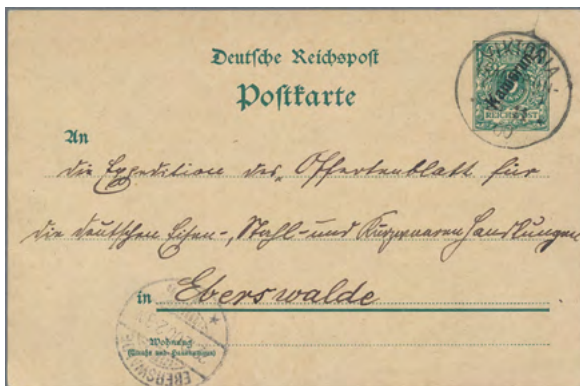 Deutsche Reichspost
Postkarte
VIKTORIA
Kamerun
REICHSPOST
An
die Expedition des Offertenblatt für
die deutschen Eisen-, Stahl- und Kurzwaaren Handlungen
in Eberswalde
Wohnung
(Straße und Hausnummer)
EBERSWALDE